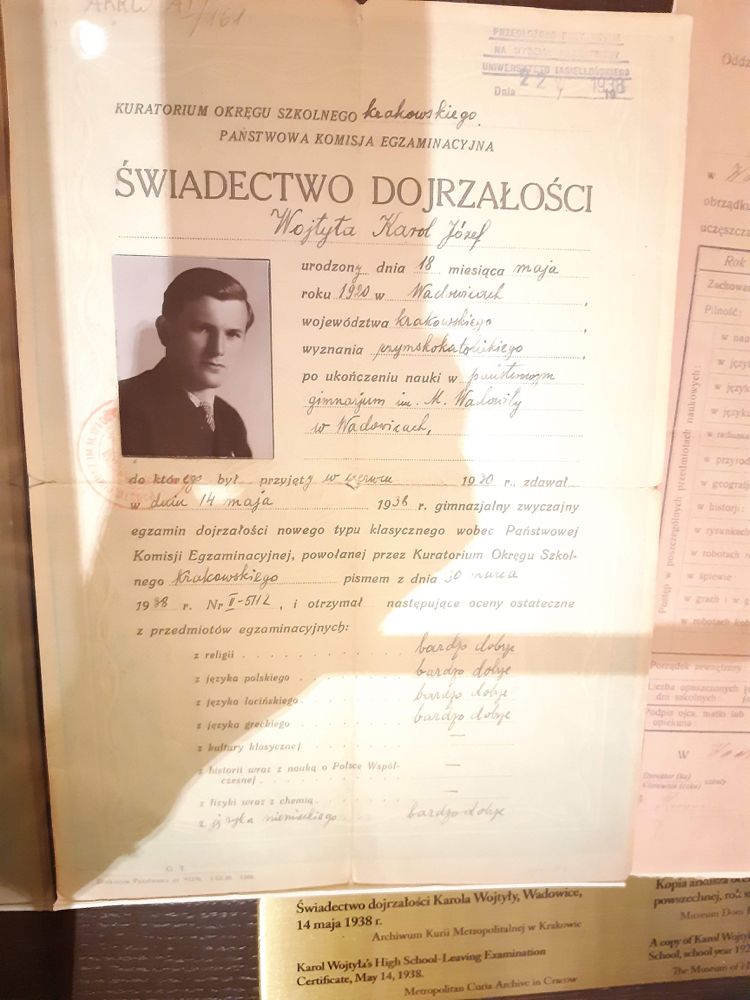 PRZEDŁOŻONO
NA
UNIWERSYTETU JAGIELLOŃSKIEGO
Dnia 22 1938
KURATORIUM OKRĘGU SZKOLNEGO krakowskiego.
PAŃSTWOWA KOMISJA EGZAMINACYJNA
ŚWIADECTWO DOJRZAŁOŚCI
Wojtyła Karol Józef
urodzony dnia 18 miesiąca maja
roku 1920 w Wadowicach,
województwa krakowskiego,
wyznania rzymskokatolickiego,
po ukończeniu nauki w państwowym
gimnazjum im. M. Wadowity
w Wadowicach,
do którego był przyjęty w czerwcu 1930 r., zdawał
w dniu 14 maja 1938 r. gimnazjalny zwyczajny
egzamin dojrzałości nowego typu klasycznego wobec Państwowej
Komisji Egzaminacyjnej, powołanej przez Kuratorium Okręgu Szkol-
nego Krakowskiego pismem z dnia 30 marca
1938 r. Nr II-5712, i otrzymał następujące oceny ostateczne
z przedmiotów egzaminacyjnych:
z religii bardzo dobrze
z języka polskiego bardzo dobrze
z języka łacińskiego bardzo dobrze
z języka greckiego bardzo dobrze
z kultury klasycznej —
z historii wraz z nauką o Polsce Współ-
czesnej —
z fizyki wraz z chemią —
z języka niemieckiego bardzo dobrze
Świadectwo dojrzałości Karola Wojtyły, Wadowice,
14 maja 1938 r.
Archiwum Kurii Metropolitalnej w Krakowie
Karol Wojtyła's High School-Leaving Examination
Certificate, May 14, 1938.
Metropolitan Curia Archive in Cracow
Oddz
w
obrządku
uczęszcza
Rok
Zachowa
Pilność:
Postęp w poszczególnych przedmiotach naukowych:
w nau
w języ
w języku
w języku
w rachunka
w przyrod
w geografji
w historji:
w rysunkach
w robotach
w śpiewie:
w grach i w g
w robotach kob
Porządek zewnętrzny
Liczba opuszczonych
dni szkolnych:
Podpis ojca, matki lub
opiekuna:
W
Dyrektor (ka)
Kierownik (czka) szkoły
Kopia
powszechnej, rok s
Museum Dom
A copy of Karol Wojtył
School, school year 192
The Museum of